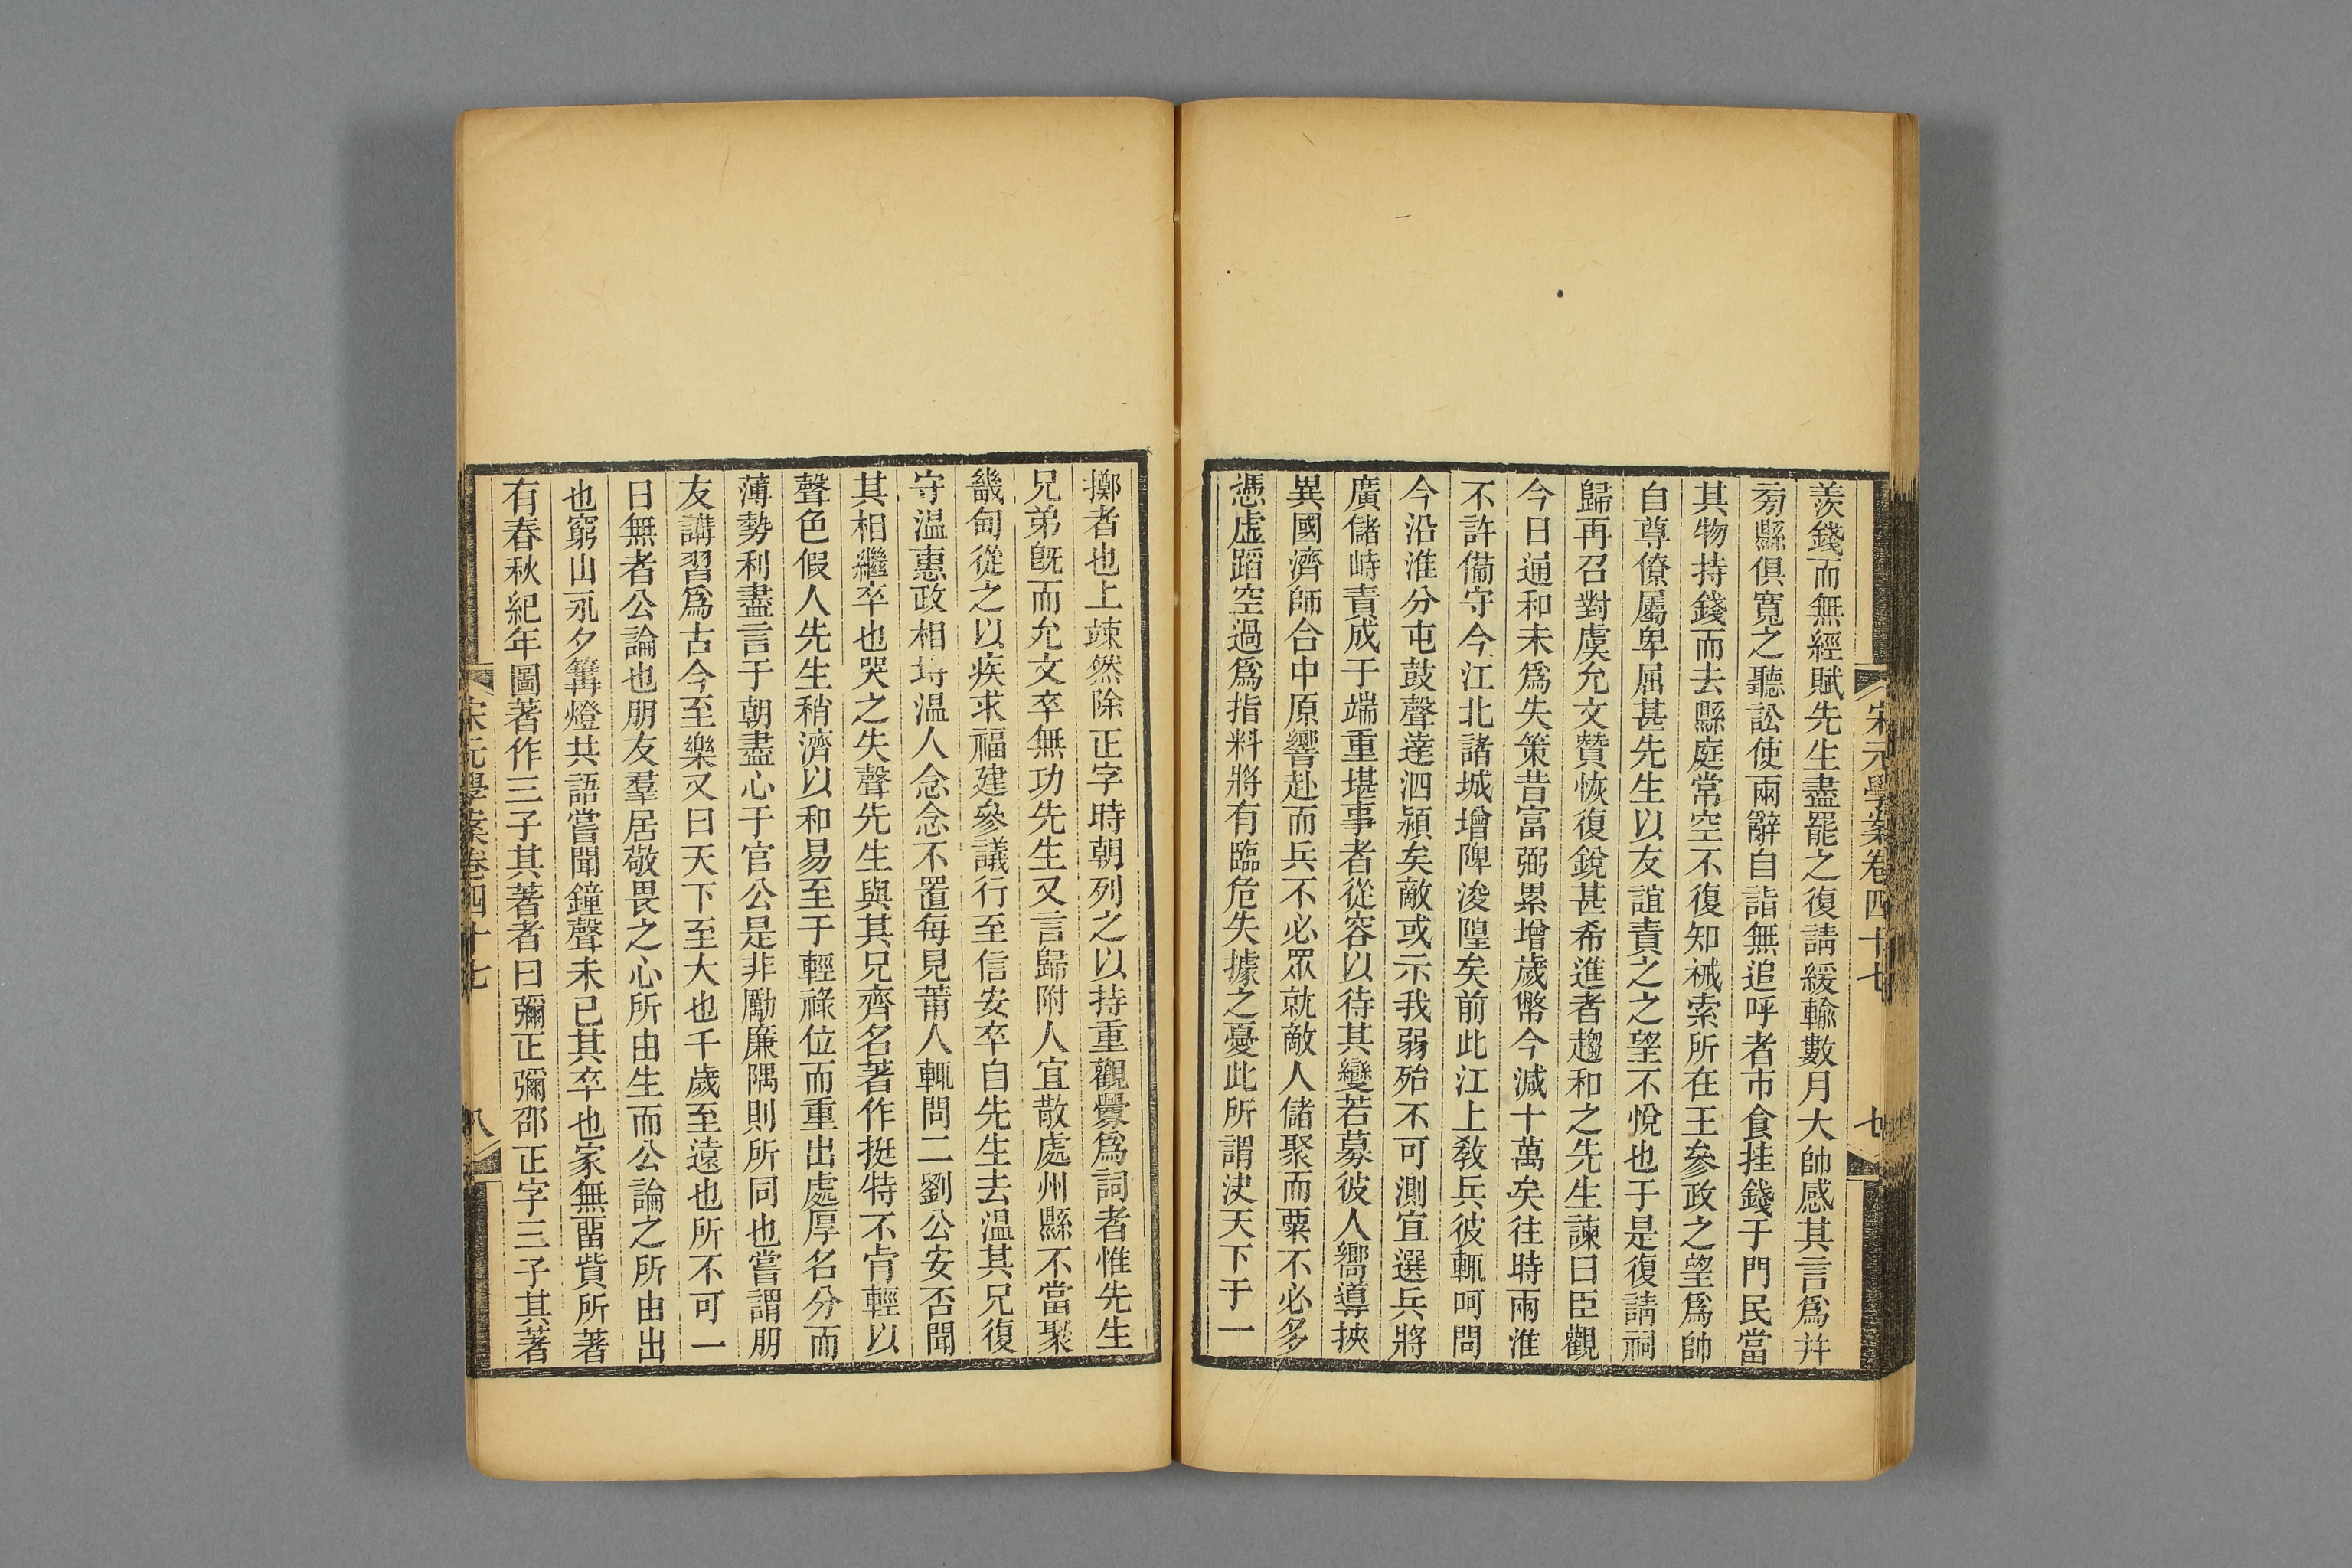 宋元學案卷四十七
七
羨錢而無經賦先生盡罷之復請緩輸數月大帥感其言爲幷
旁縣俱寬之聽訟使兩辭自詣無追呼者市食挂錢于門民當
其物持錢而去縣庭常空不復知祴索所在王參政之望爲帥
自尊僚屬卑屈甚先生以友誼責之之望不悅也于是復請祠
歸再召對虞允文贊恢復銳甚希進者趨和之先生諫曰臣觀
今日通和未爲失策昔富弼累增歲幣今減十萬矣往時兩淮
不許備守今江北諸城增陴浚隍矣前此江上敎兵彼輒呵問
今沿淮分屯鼓聲達泗潁矣敵或示我弱殆不可測宜選兵將
廣儲峙責成于端重堪事者從容以待其變若募彼人嚮導挾
異國濟師合中原響赴而兵不必眾就敵人儲聚而粟不必多
憑虛蹈空過爲指料將有臨危失據之憂此所謂决天下于一
擲者也上竦然除正字時朝列之以持重觀釁爲詞者惟先生
兄弟旣而允文卒無功先生又言歸附人宜散處州縣不當聚
畿甸從之以疾求福建參議行至信安卒自先生去温其兄復
守温惠政相埒温人念念不置每見莆人輒問二劉公安否聞
其相繼卒也哭之失聲先生與其兄齊名著作挺特不肯輕以
聲色假人先生稍濟以和易至于輕祿位而重出處厚名分而
薄勢利盡言于朝盡心于官公是非勵廉隅則所同也嘗謂朋
友講習爲古今至樂又曰天下至大也千歲至遠也所不可一
日無者公論也朋友羣居敬畏之心所由生而公論之所由出
也窮山永夕篝燈共語嘗聞鐘聲未已其卒也家無畱貲所著
有春秋紀年圖著作三子其著者曰彌正彌邵正字三子其著
宋元學案卷四十七
八